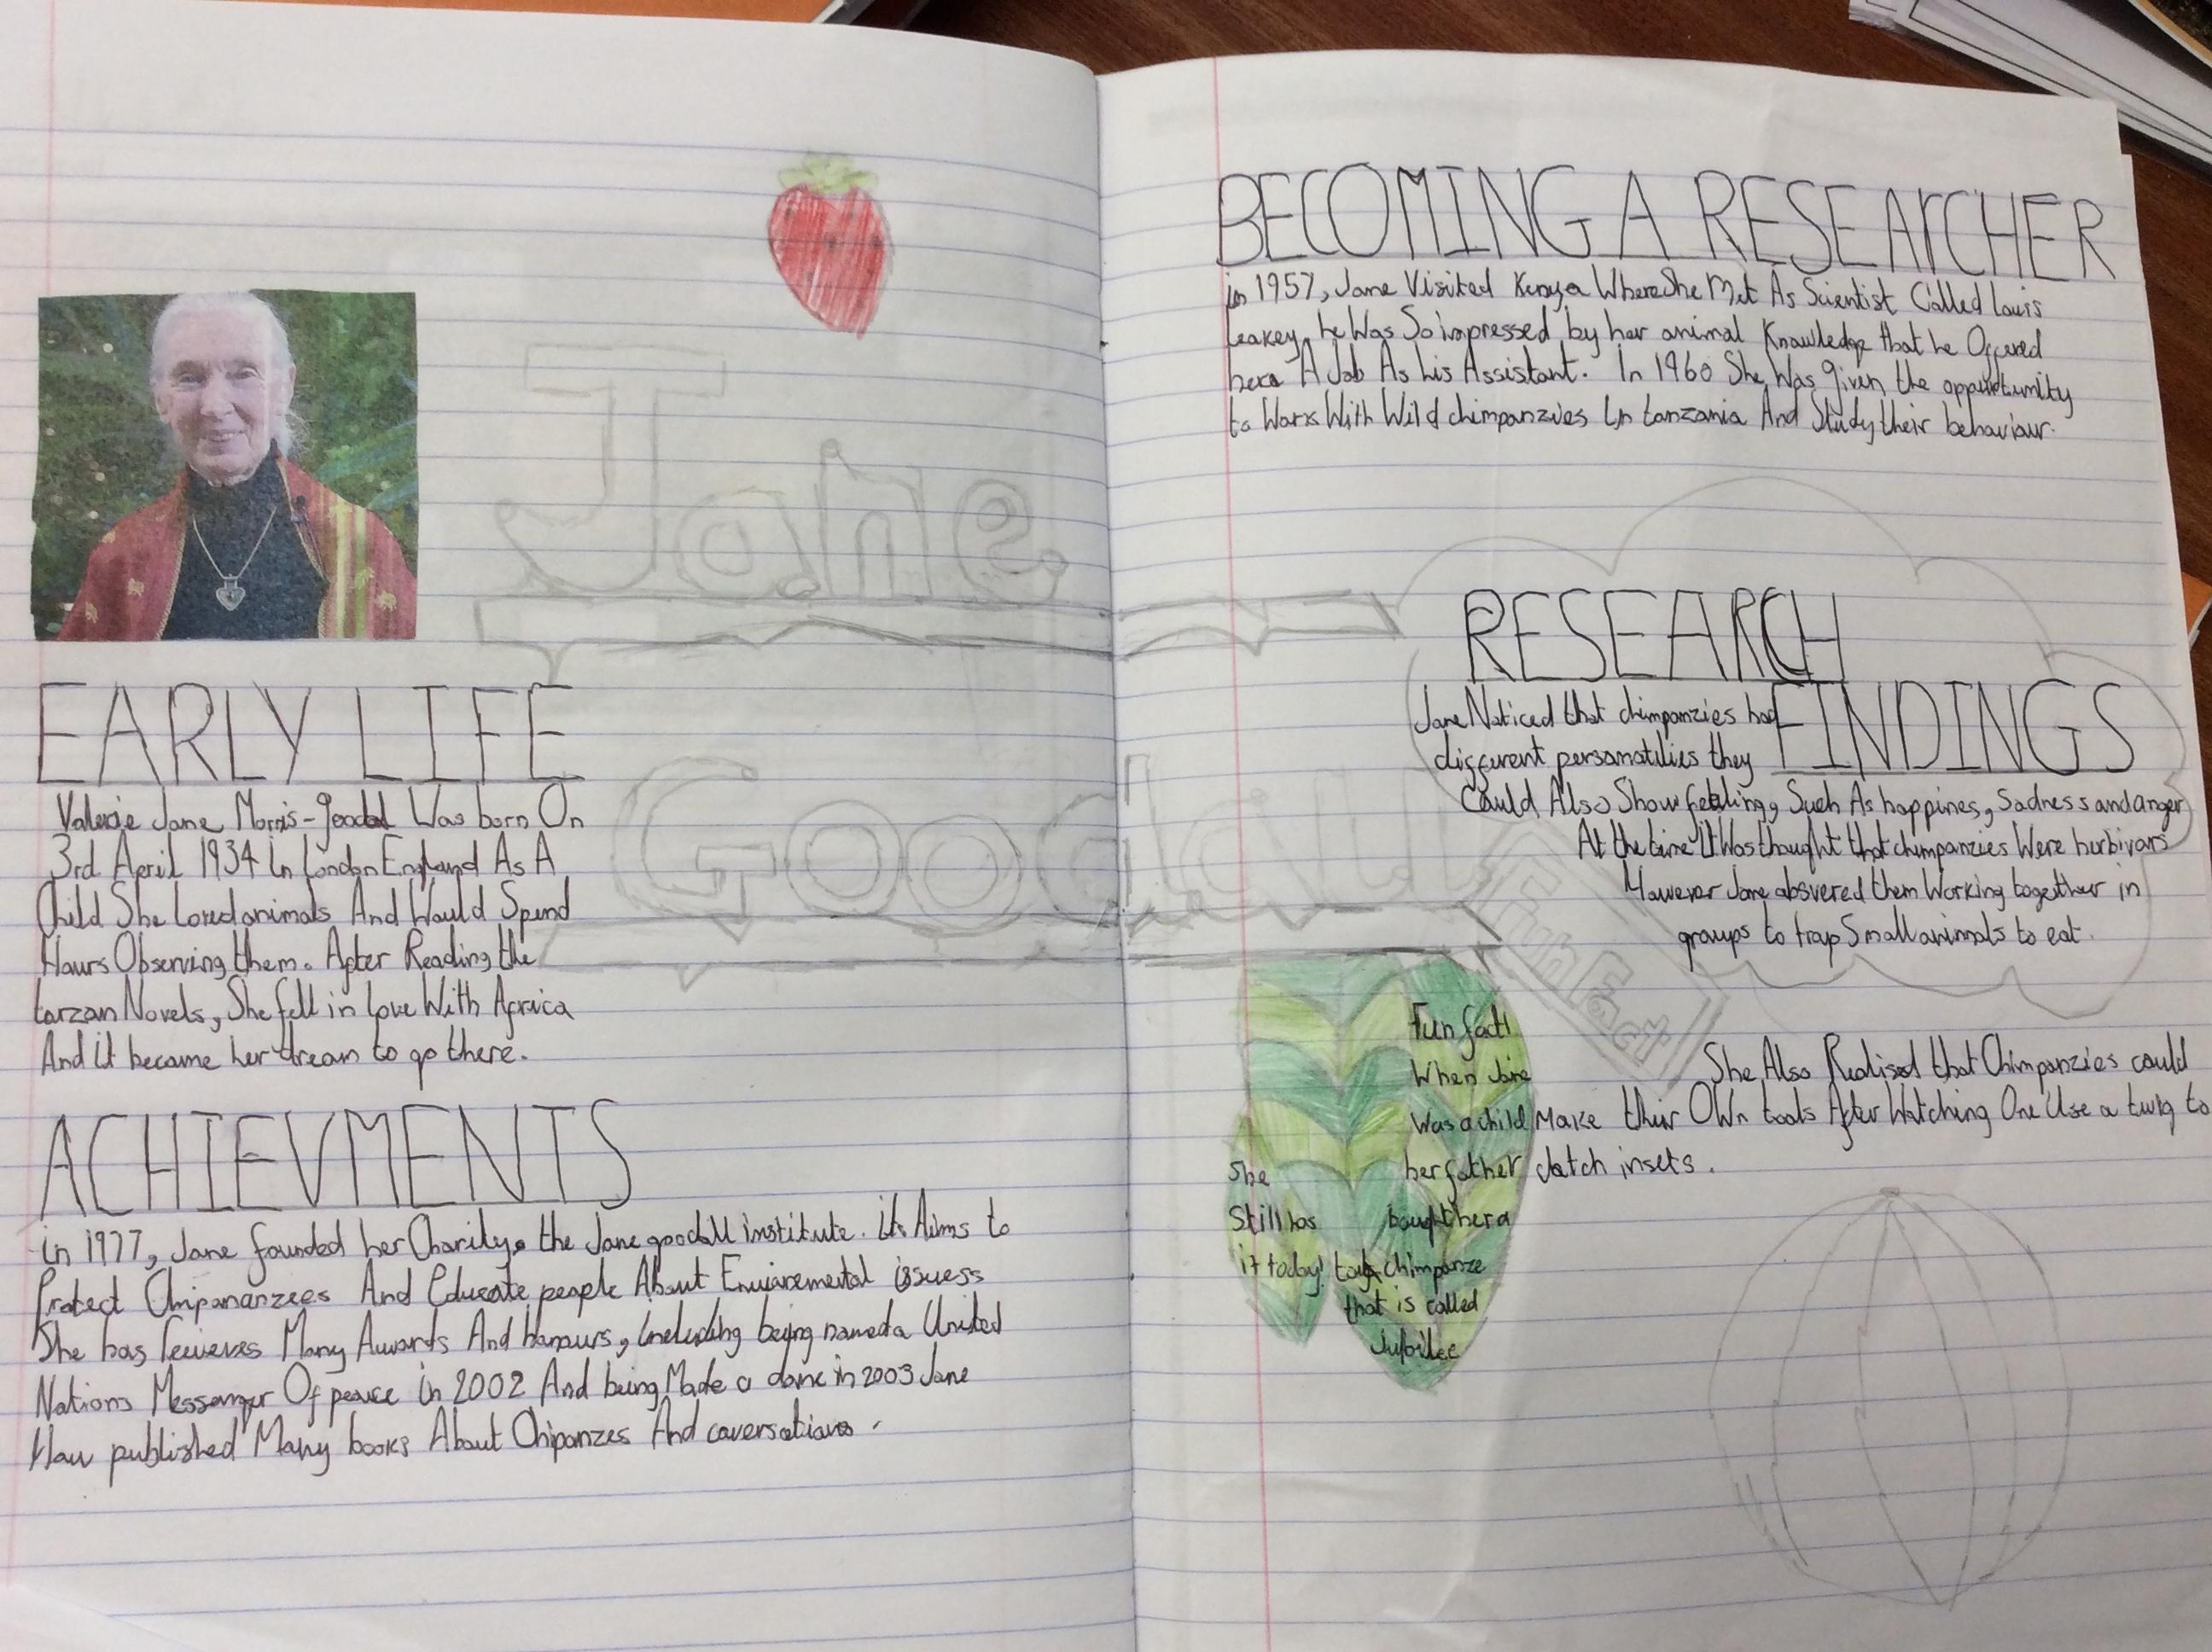 Jane
Goodall
EARLY LIFE
Valerie Jane Morris-goodal Was born On
3rd April 1934 in London England As A
Child She Loved animals And Would Spend
Hours Observing them. After Reading the
tarzan Novels, She fell in love With Africa
And it became her dream to go there.
ACHIEVMENTS
in 1977, Jane founded her Charity, the Jane goodall institute. its Aims to
Protect Chipananzees And Educate people About Enviaremental issuess
She has Many Awards And honours, including being named a United
Nations Messanger Of peace in 2002 And being Made a dame in 2003 Jane
Hau published Many books About Chipanzes And caversations.
BECOMING A RESEArCHER
in 1957, Jane Visited Kenya Where She Met As Scientist Called louis
leakey, he Was So impressed by her animal Knowledge that he Offered
here A Job As his Assistant. In 1960 She Was given the oppurtunity
to Work With Wild chimpanzies in tanzania And Study their behaviour.
RESEARCH
FINDINGS
Jane Noticed that chimpanzies had
different personatilies they
Could Also Show feeling, Such As happines, sadness and anger
At the time it Was thought that chimpanzies Were hurbivars
However Jane absvered them Working together in
groups to trap Small animals to eat.
Fun Fact!
She Also Realised that Chimpanzies could
Make their Own tools After Watching One Use a twig to
catch insets.
Fun fact!
When Jane
Was a child
her father
bought her a
toy chimpanze
that is called
Jubilee
She
Still has
it today!